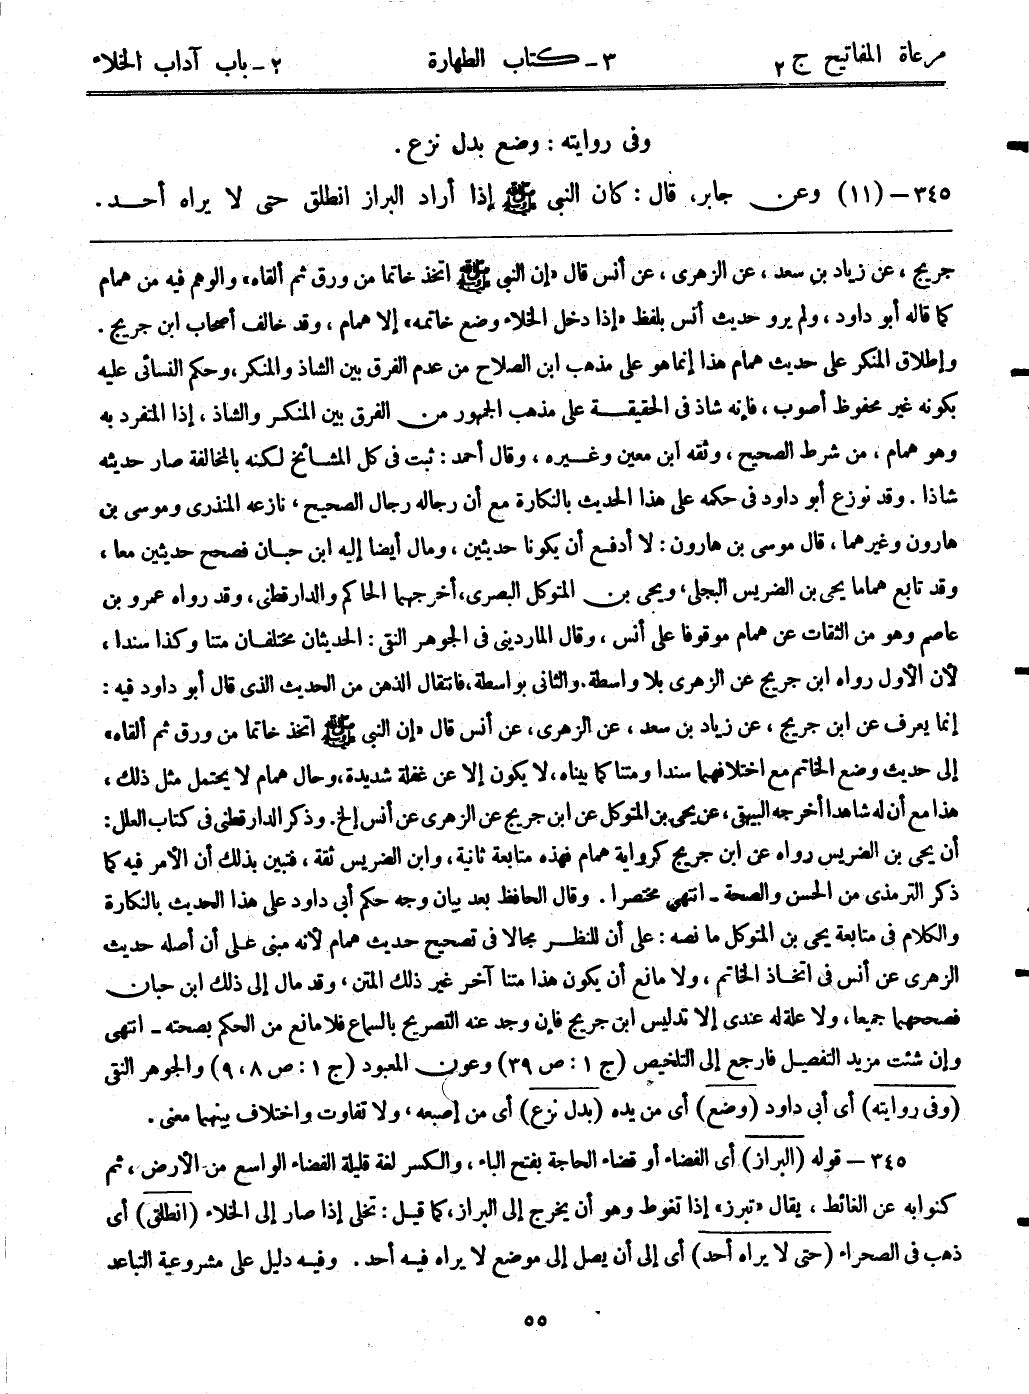 مرعاة المفاتيح ج ٢ ٣ - كتاب الطهارة ٢ - باب آداب الخلاء
وفى روايته : وضع بدل نزع .
٣٤٥ - (١١) وعن جابر، قال : كان النبي ﷺ إذا أراد البراز انطلق حتى لا يراه أحد .
جريج ، عن زياد بن سعد ، عن الزهرى ، عن أنس قال «إن النبي ﷺ اتخذ خاتما من ورق ثم ألقاه» والوهم فيه من همام
كما قاله أبو داود ، ولم يرو حديث أنس بلفظ «إذا دخل الخلاء وضع خاتمه» إلا همام ، وقد خالف أصحاب ابن جريج .
وإطلاق المنكر على حديث همام هذا إنما هو على مذهب ابن الصلاح من عدم الفرق بين الشاذ والمنكر، وحكم النسائى عليه
بكونه غير محفوظ أصوب ، فإنه شاذ فى الحقيقة على مذهب الجمهور من الفرق بين المنكر والشاذ ، إذا المتفرد به
وهو همام ، من شرط الصحيح ، وثقه ابن معين وغيره ، وقال أحمد : ثبت فى كل المشائخ لكنه بالمخالفة صار حديثه
شاذا . وقد نوزع أبو داود فى حكمه على هذا الحديث بالنكارة مع أن رجاله رجال الصحيح ، نازعه المنذرى وموسى بن
هارون وغيرهما ، قال موسى بن هارون : لا أدفع أن يكونا حديثين ، ومال أيضا إليه ابن حبان فصحح حديثين معا ،
وقد تابع هماما يحيى بن الضريس البجلى، ويحيى بن المتوكل البصرى، أخرجهما الحاكم والدارقطنى ، وقد رواه عمرو بن
عاصم وهو من الثقات عن همام موقوفا على أنس ، وقال الماردينى فى الجوهر النقى : الحديثان مختلفان متنا وكذا سندا ،
لأن الأول رواه ابن جريج عن الزهرى بلا واسطة. والثانى بواسطة، فانتقال الذهن من الحديث الذى قال أبو داود فيه :
إنما يعرف عن ابن جريج ، عن زياد بن سعد ، عن الزهرى، عن أنس قال «إن النبي ﷺ اتخذ خاتما من ورق ثم ألقاه»
إلى حديث وضع الخاتم مع اختلافهما سندا ومتنا كما بيناه، لا يكون إلا عن غفلة شديدة، وحال همام لا يحتمل مثل ذلك ،
هذا مع أن له شاهدا أخرجه البيهقى ، عن يحيى بن المتوكل عن ابن جريج عن الزهرى عن أنس إلخ. وذكر الدارقطنى فى كتاب العلل :
أن يحيى بن الضريس رواه عن ابن جريج كرواية همام فهذه متابعة ثانية ، وابن الضريس ثقة ، فتبين بذلك أن الأمر فيه كما
ذكر الترمذى من الحسن والصحة - انتهى مختصرا . وقال الحافظ بعد بيان وجه حكم أبى داود على هذا الحديث بالنكارة
والكلام فى متابعة يحيى بن المتوكل ما نصه : على أن للنظر مجالا فى تصحيح حديث همام لأنه مبنى على أن أصله حديث
الزهرى عن أنس فى اتخاذ الخاتم ، ولا مانع أن يكون هذا متنا آخر غير ذلك المتن ، وقد مال إلى ذلك ابن حبان
فصححهما جميعا ، ولا علة له عندى إلا تدليس ابن جريج فإن وجد عنه التصريح بالسماع فلا مانع من الحكم بصحته - انتهى
وإن شئت مزيد التفصيل فارجع إلى التلخيص (ج ١ : ص ٣٩) وعون المعبود (ج ١ : ص ٨، ٩) والجوهر النقى
(وفى روايته) أى أبى داود (وضع) أى من يده (بدل نزع) أى من إصبعه ، ولا تفاوت واختلاف بينهما معنى .
٣٤٥ - قوله (البراز) أى الفضاء أو قضاء الحاجة بفتح الباء ، والكسر لغة قليلة الفضاء الواسع من الأرض ، ثم
كنوا به عن الغائط ، يقال «تبرز» إذا تغوط وهو أن يخرج إلى البراز، كما قيل : تخلى إذا صار إلى الخلاء (انطلق) أى
ذهب فى الصحراء (حتى لا يراه أحد) أى إلى أن يصل إلى موضع لا يراه فيه أحد . وفيه دليل على مشروعية التباعد
٥٥